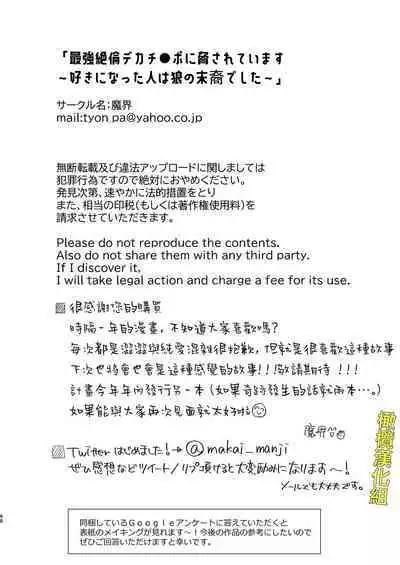 「最強絶倫デカチ●ポに脅されています
～好きになった人は狼の末裔でした～」
サークル名：魔界
mail:tyon_pa@yahoo.co.jp
無断転載及び違法アップロードに関しましては
犯罪行為ですので絶対におやめください。
発見次第、速やかに法的措置をとり
また、相当の印税(もしくは著作権使用料)を
請求させていただきます。
Please do not reproduce the contents.
Also do not share them with any third party.
If I discover it,
I will take legal action and charge a fee for its use.
很感謝您的購買
時隔一年的漫畫，不知道大家喜歡嗎？
每次都是澀澀與純愛混雜很抱歉，但就是很喜歡這種故事
下次也將會也會是這種感覺的故事!! 敬請期待!!!
計畫今年年內發行另一本(如果奇蹟發生的話就兩本…。)
如果能與大家再次見面就太好啦
魔界
Twitterはじめました！→@makai_manji
ぜひ感想などツイート/リプ頂けると大変励みになります～！
メールでも大丈夫です。
橄欖漢化組
同梱しているGoogleアンケートに答えていただくと
表紙のメイキングが見れます～！今後の作品の参考にしたいので
ぜひご回答いただけますと幸いです。